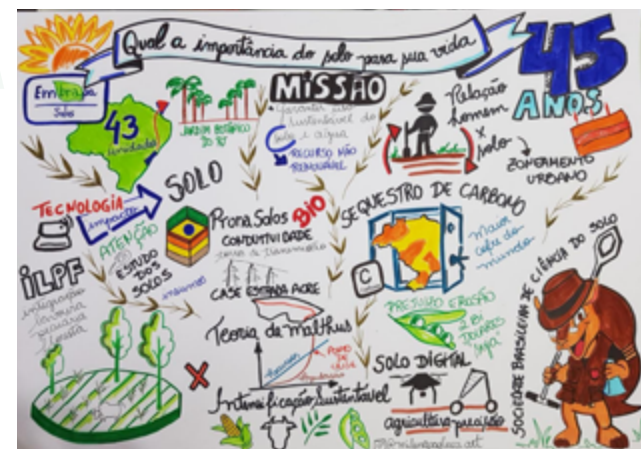 Qual a importância do solo para sua vida
45
ANOS
Embrapa
Solos
43
unidades
JARDIM BOTÂNICO
DO RJ
MISSÃO
Garantir uso
sustentável do
solo e água
RECURSO NÃO
RENOVÁVEL
Relação
homem
x
solo
ZONEAMENTO
URBANO
SOLO
TECNOLOGIA
impacto
ATENÇÃO
ESTUDO
DOS
SOLOS
ILPF
integração
lavoura
pecuária
floresta
PronaSolos
BIO
CONDUTIVIDADE
CASE ESTRADA ACRE
SEQUESTRO DE CARBONO
C
maior
cofre do
mundo
PREJUÍZO EROSÃO
2 BI
DÓLARES
soja
Teoria de malthus
PONTO
DE
CRISE
SOLO DIGITAL
Intensificação Sustentável
agricultura precisão
SOCIEDADE BRASILEIRA DE CIÊNCIA DO SOLO